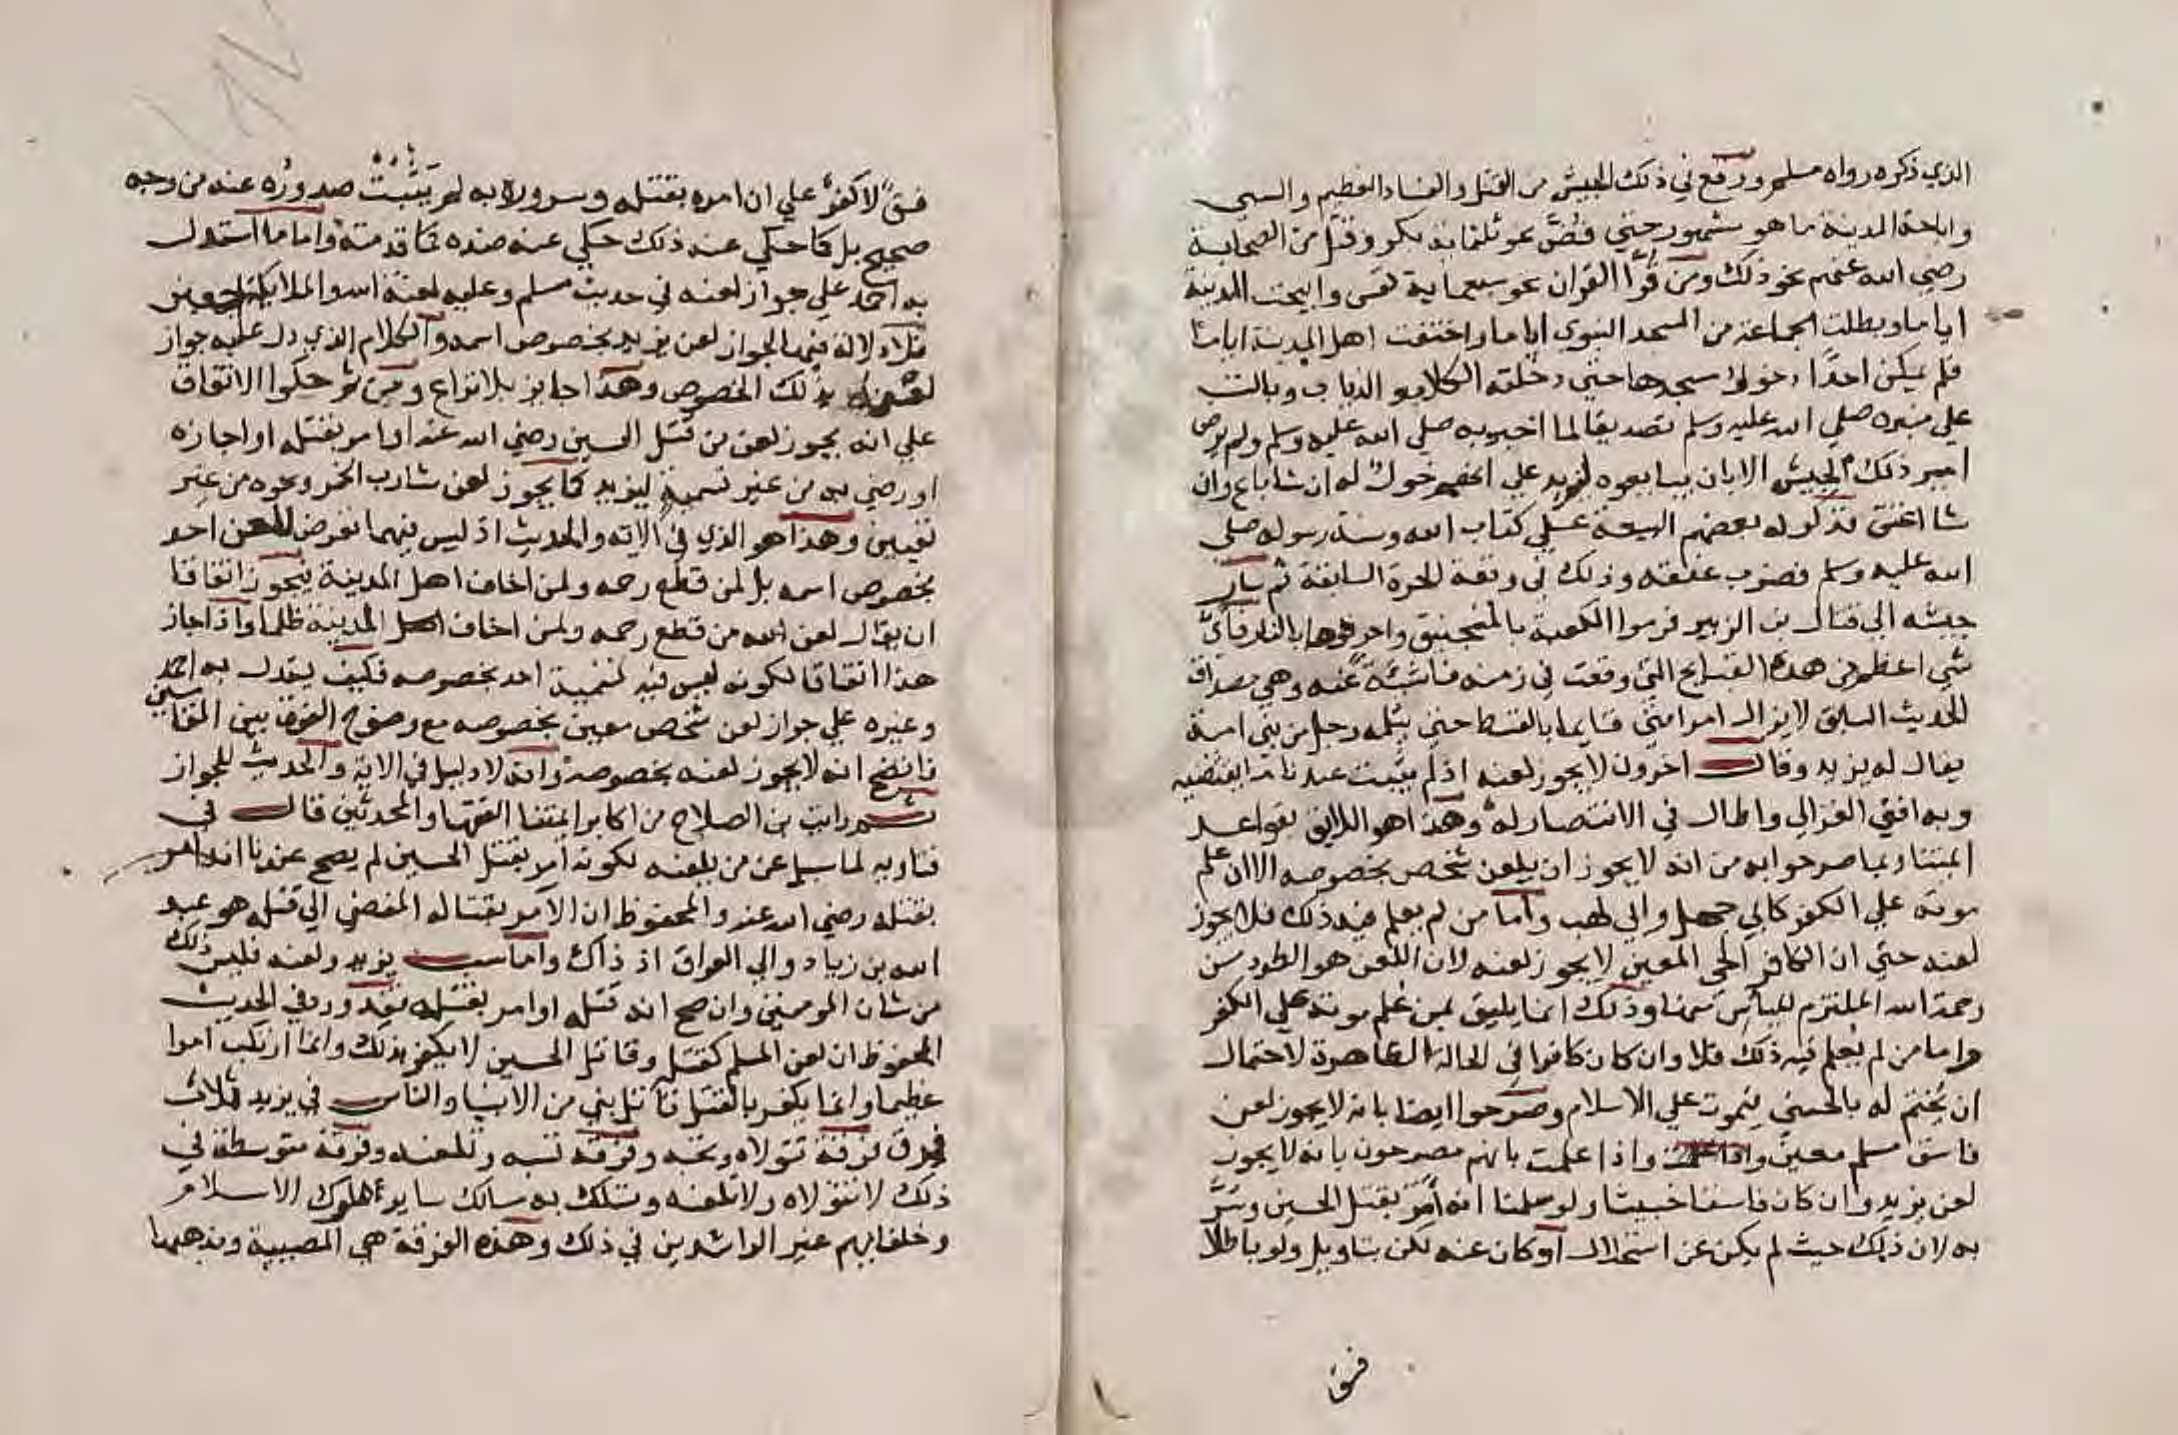 الذي ذكره رواه مسلم ووقع في ذلك الجيش من القتل والفساد العظيم والسبي
واباحة المدينة ما هو مشهور حتي فض نحو ثلثماية بكر وقتل من الصحابة
رضي الله عنهم نحو ذلك ومن قرا القران نحو سبعماية نفس وابيحت المدينة
اياما وبطلت الجماعة من المسجد النبوي اياما واختفت اهل المدينة اياما
فلم يمكن احدا دخول مسجدها حتي دخلته الكلاب والذياب وبالت
علي منبره صلي الله عليه وسلم تصديقا لما اخبر به صلي الله عليه وسلم ولم يرض
امير ذلك الجيش الا بان يبايعوه ليزيد علي انهم خول له ان شا باع وان
شا اعتق فذكر له بعضهم البيعة علي كتاب الله وسنة رسوله صلي
الله عليه وسلم فضرب عنقه وذلك في وقعة الحرة السابقة ثم سار
جيشه الي قتال بن الزبير فرموا الكعبة بالمنجنيق واحرقوها بالنار فاي
شي اعظم من هذه القبايح التي وقعت في زمنه ناشئة عنه وهي مصداق
الحديث السابق لا يزال امر امتي قايما بالقسط حتي يثلمه رجل من بني امية
يقال له يزيد وقال اخرون لا يجوز لعنه اذ لم يثبت عندنا ما يقتضيه
وبه افتي الغزالي واطال في الانتصار له وهذا هو اللايق بقواعد
ايمتنا وبما صرحوا به من انه لا يجوز ان يلعن شخص بخصوصه الا ان علم
موته علي الكفر كابي جهل وابي لهب واما من لم يعلم فيه ذلك فلا يجوز
لعنه حتي ان الكافر الحي المعين لا يجوز لعنه لان اللعن هو الطرد من
رحمة الله الملتزم للياس منها وذلك انما يليق بمن علم موته علي الكفر
واما من لم يعلم فيه ذلك فلا وان كان كافرا في الحالة الظاهرة لاحتمال
ان يختم له بالحسني فيموت علي الاسلام وصرحوا ايضا بانه لا يجوز لعن
فاسق مسلم معين واذا علمت بانهم مصرحون بانه لا يجوز
لعن يزيد وان كان فاسقا خبيثا ولو سلمنا انه امر بقتل الحسين وسر
به لان ذلك حيث لم يكن عن استحلال او كان عنه لكن بتاويل ولو باطلا
فسق
فسق لا كفر علي ان امره بقتله وسروره به لم يثبت صدوره عنه من وجه
صحيح بل كما حكي عنه ذلك حكي عنه ضده كما قدمته واما ما استدل
به احمد علي جواز لعنه في حديث مسلم وعليه لعنة الله والملايكة اجمعين
فلا دلالة فيهما لجواز لعن يزيد بخصوص اسمه والكلام الذي دل عليه جواز
لعنه بذلك الخصوص وهذا جايز بلا نزاع ومن ثم حكوا الاتفاق
علي انه يجوز لعن من قتل الحسين رضي الله عنه او امر بقتله او اجازه
او رضي به من غير تسمية ليزيد كما يجوز لعن شارب الخمر ونحوه من غير
تعيين وهذا هو الذي في الاية والحديث اذ ليس فيهما تعرض للعن احد
بخصوص اسمه بل لمن قطع رحمه ولمن اخاف اهل المدينة فيجوز اتفاقا
ان يقال لعن الله من قطع رحمه ولمن اخاف اهل المدينة ظلما واذا جاز
هذا اتفاقا لكونه ليس فيه تسمية احد بخصوصه فكيف يستدل به احمد
وغيره علي جواز لعن شخص معين بخصوصه مع وضوح الفرق بين المقامين
فاتضح انه لا يجوز لعنه بخصوصه وانه لا دليل في الاية والحديث للجواز
ثم رايت بن الصلاح من اكابر ايمتنا الفقها والمحدثين قال في
فتاويه لما سيل عن من يلعنه لكونه امر بقتل الحسين لم يصح عندنا انه امر
بقتله رضي الله عنه والمحفوظ ان الامر بقتاله المفضي الي قتله هو عبيد
الله بن زياد والي العراق اذ ذاك واما سب يزيد ولعنه فليس ذلك
من شان المومنين وان صح انه قتله او امر بقتله فقد ورد في الحديث
المحفوظ ان لعن المسلم كقتله وقاتل الحسين لا يكفر بذلك وانما ارتكب امرا
عظيما وانما يكفر بالقتل قاتل نبي من الانبيا والناس في يزيد ثلاث
فرق فرقة تتولاه وتحبه وفرقة تسبه وتلعنه وفرقة متوسطة في
ذلك لا تتولاه ولا تلعنه وتسلك به سالك ساير ملوك الاسلام
وخلفايهم غير الراشدين في ذلك وهذه الفرقة هي المصيبة ومذهبها